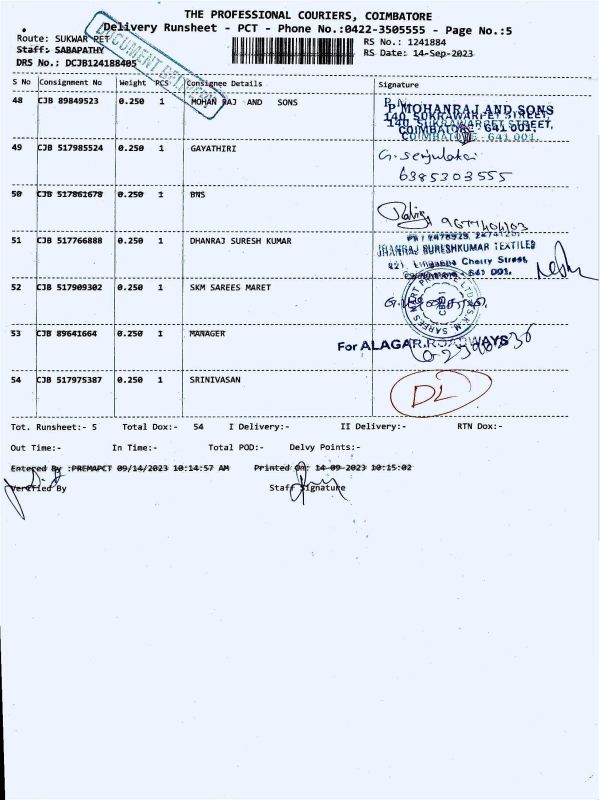 THE PROFESSIONAL COURIERS, COIMBATORE
Delivery Runsheet - PCT - Phone No.:0422-3505555 - Page No.:5
Route: SUKWAR PET
RS No.: 1241884
Staff: SABAPATHY
RS Date: 14-Sep-2023
DRS No.: DCJB124188405
DOCUMENT DELIVERY
S No Consignment No Weight PCS Consignee Details Signature
48 CJB 89849523 0.250 1 MOHAN RAJ AND SONS
P. MOHANRAJ AND SONS
140, SUKRAWARPET STREET,
COIMBATORE - 641 001.
49 CJB 517985524 0.250 1 GAYATHIRI
6385303555
50 CJB 517861678 0.250 1 BNS
51 CJB 517766888 0.250 1 DHANRAJ SURESH KUMAR
DHANRAJ SURESHKUMAR TEXTILES
Chetty Street,
641 001.
52 CJB 517909302 0.250 1 SKM SAREES MARET
53 CJB 89641664 0.250 1 MANAGER
For ALAGAR ROADWAYS
54 CJB 517975387 0.250 1 SRINIVASAN
DL
Tot. Runsheet:- 5 Total Dox:- 54 I Delivery:- II Delivery:- RTN Dox:-
Out Time:- In Time:- Total POD:- Delvy Points:-
Entered By :PREMAPCT 09/14/2023 10:14:57 AM Printed On: 14-09-2023 10:15:02
Verified By Staff Signature